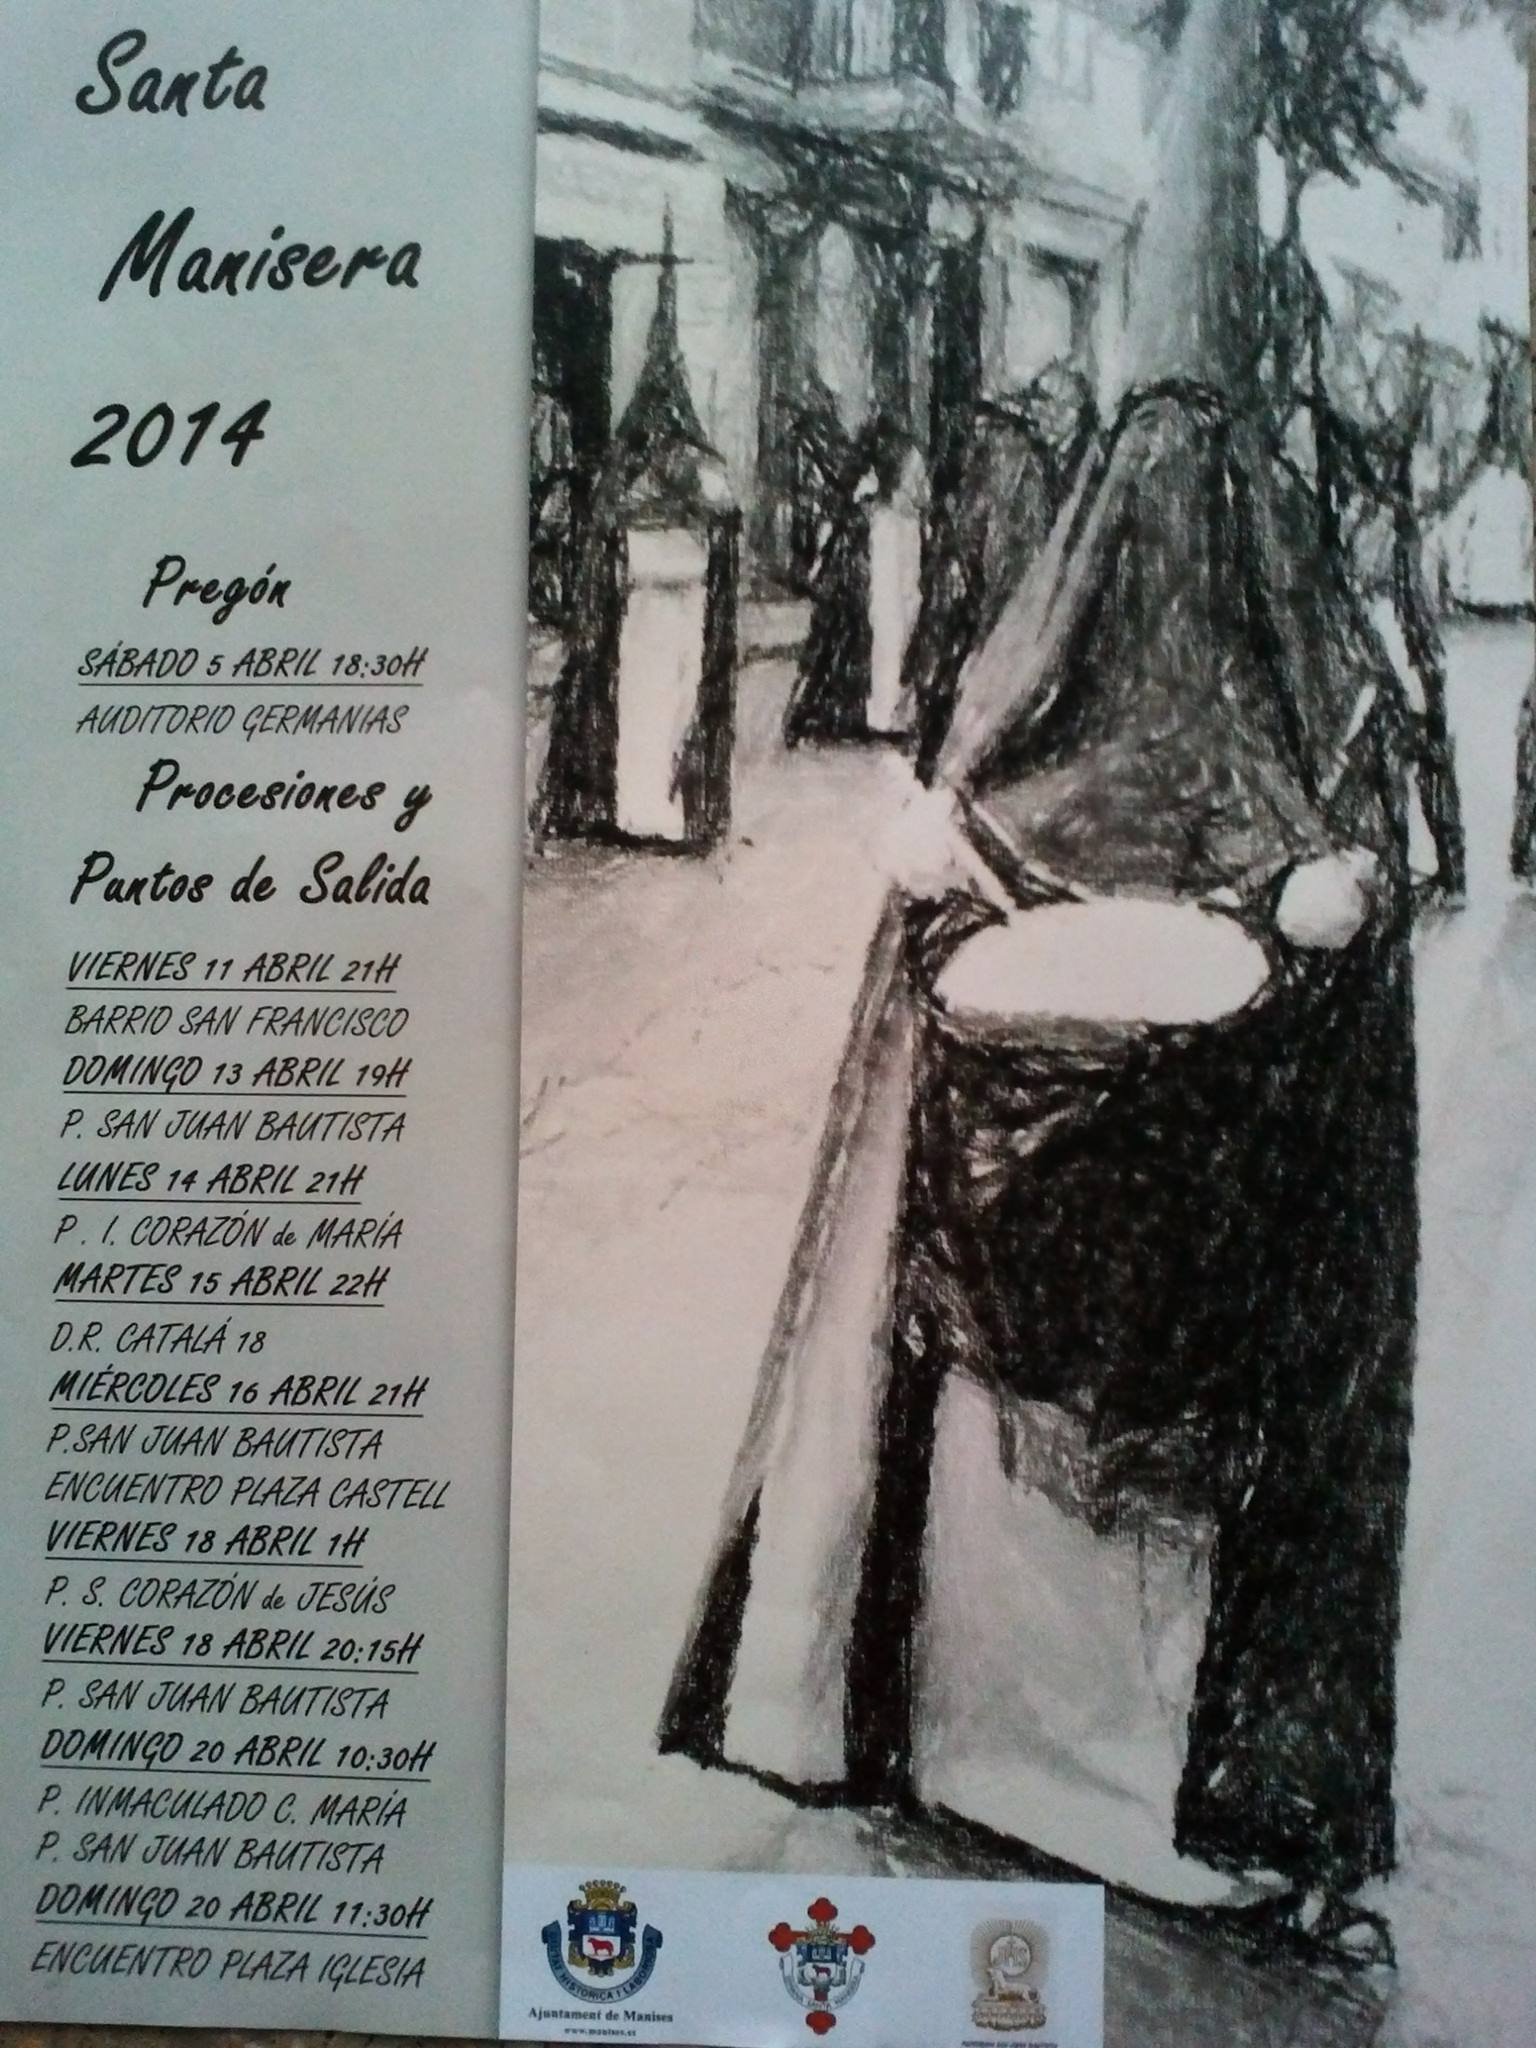 Santa
Manisera
2014
Pregón
SÁBADO 5 ABRIL 18:30H
AUDITORIO GERMANIAS
Procesiones y
Puntos de Salida
VIERNES 11 ABRIL 21H
BARRIO SAN FRANCISCO
DOMINGO 13 ABRIL 19H
P. SAN JUAN BAUTISTA
LUNES 14 ABRIL 21H
P. I. CORAZÓN de MARÍA
MARTES 15 ABRIL 22H
D.R. CATALÁ 18
MIÉRCOLES 16 ABRIL 21H
P.SAN JUAN BAUTISTA
ENCUENTRO PLAZA CASTELL
VIERNES 18 ABRIL 1H
P. S. CORAZÓN de JESÚS
VIERNES 18 ABRIL 20:15H
P. SAN JUAN BAUTISTA
DOMINGO 20 ABRIL 10:30H
P. INMACULADO C. MARÍA
P. SAN JUAN BAUTISTA
DOMINGO 20 ABRIL 11:30H
ENCUENTRO PLAZA IGLESIA
HISTORICA I LABORIOSA
Ajuntament de Manises
www.manises.es